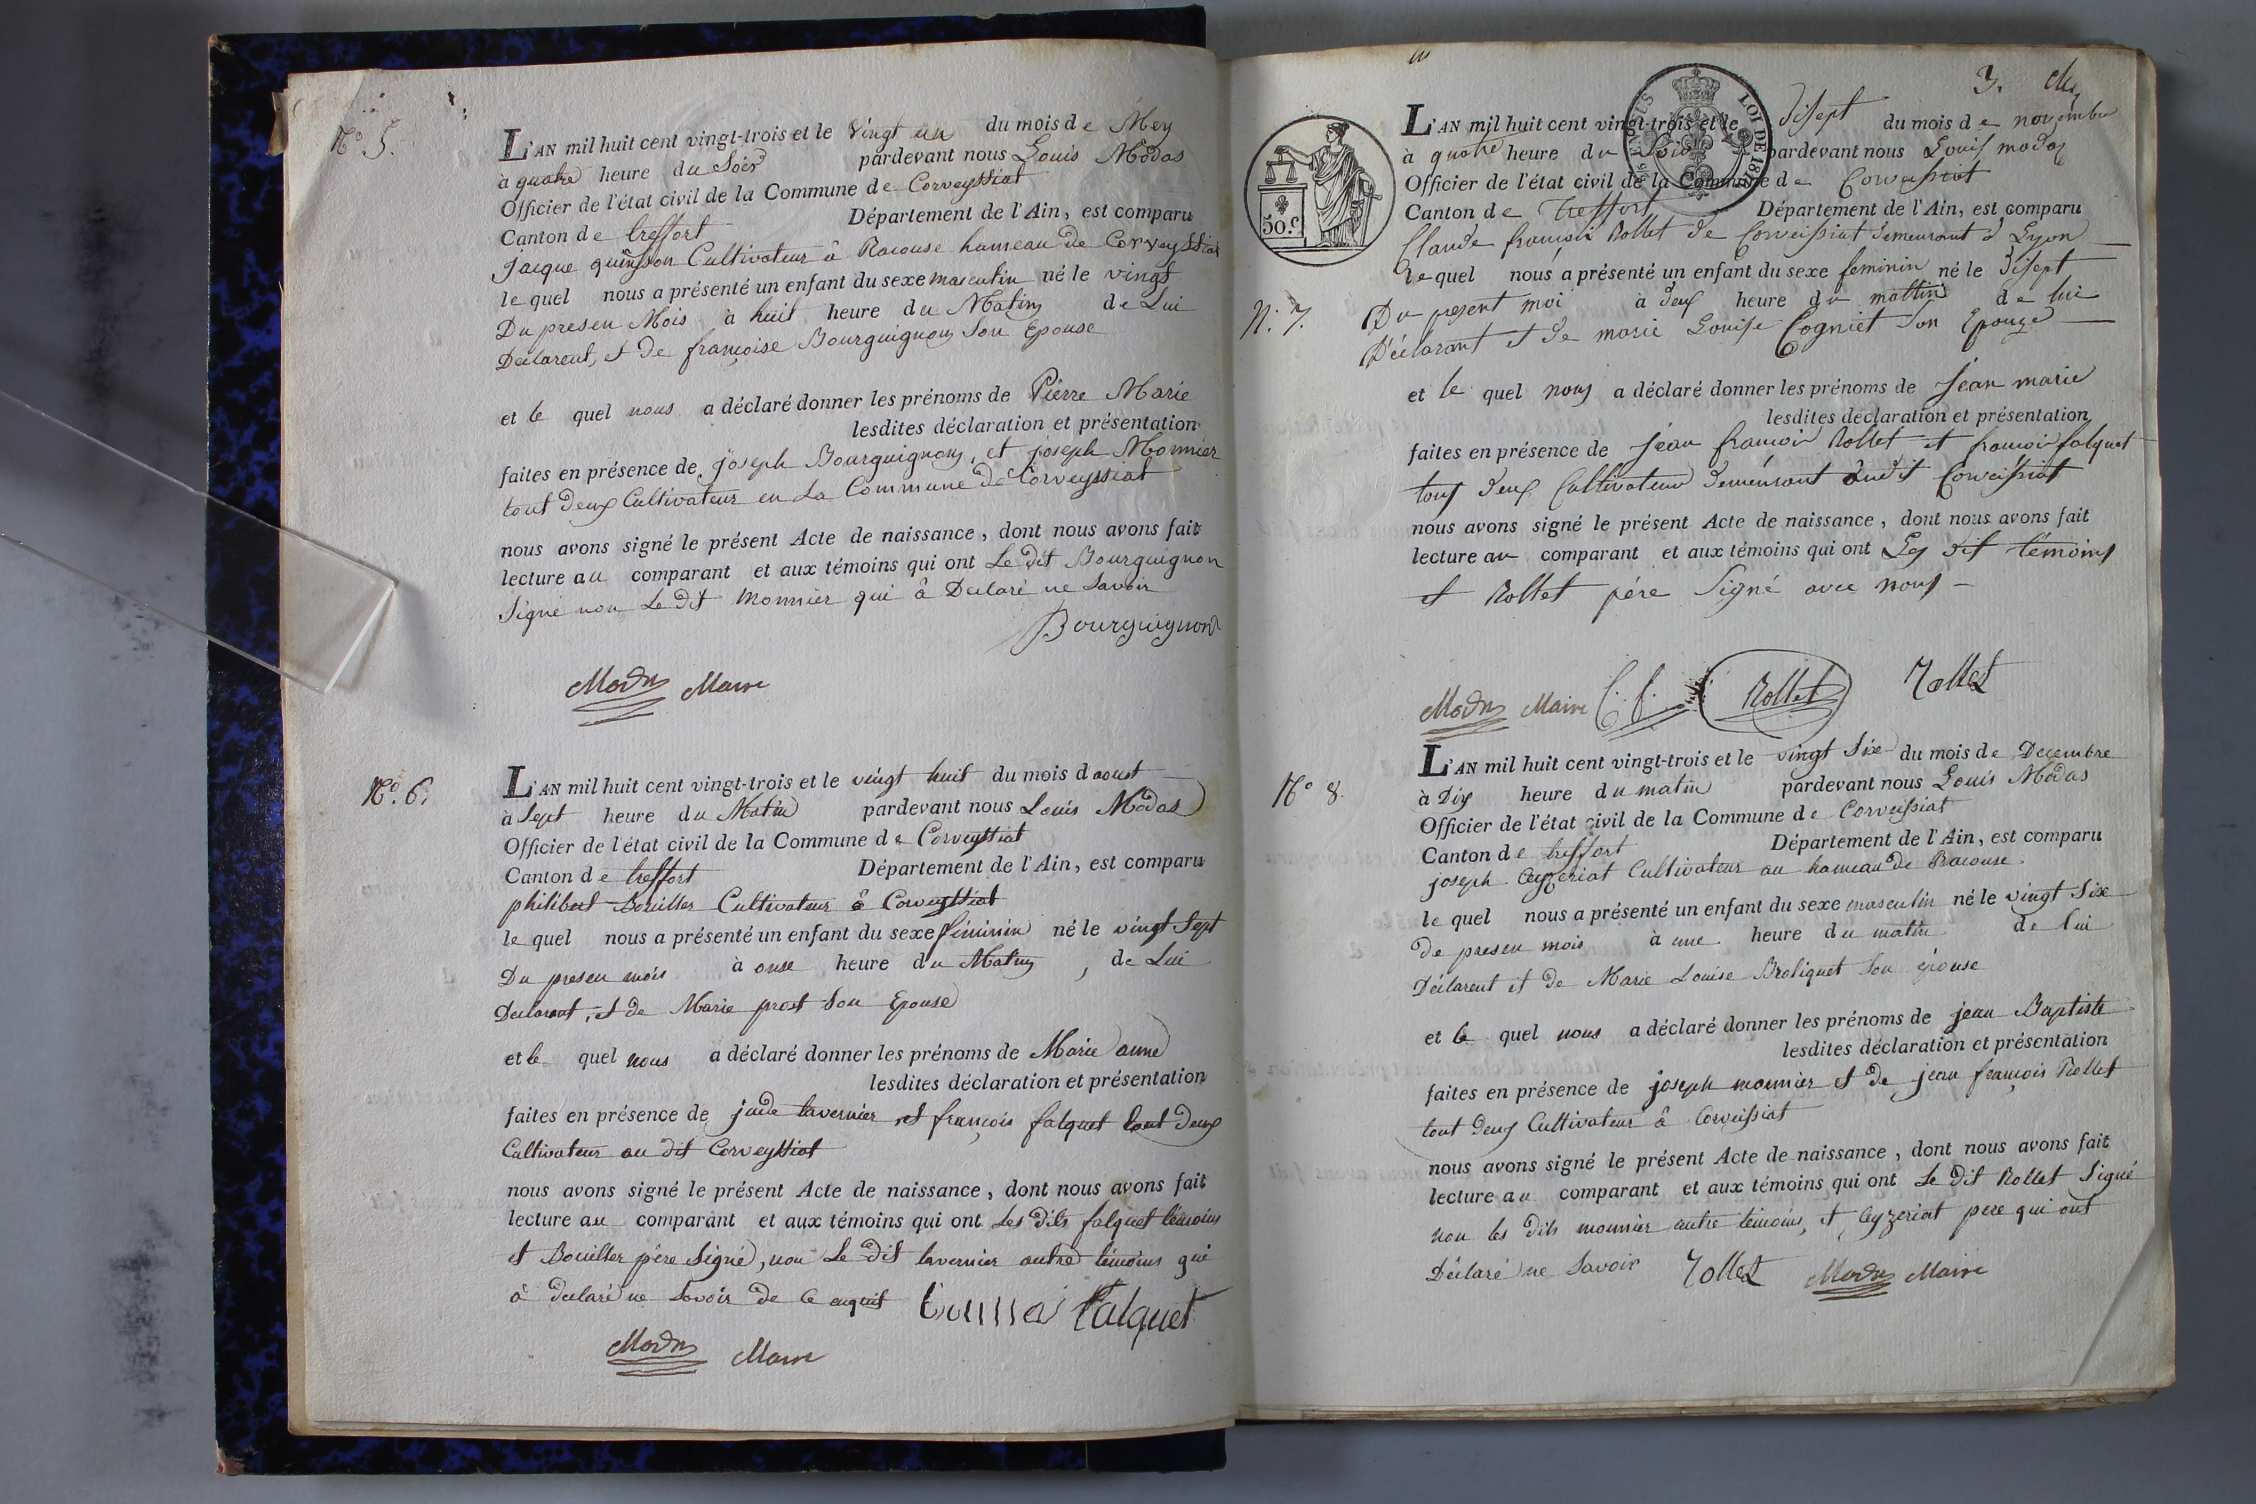 N.o 5.
L'AN mil huit cent vingt-trois et le vingt un du mois de Mey
à quatre heure du Soir pardevant nous Louis Modas
Officier de l'état civil de la Commune de Corveyssiat
Canton de treffort Département de l'Ain, est comparu
Jacque quinsson Cultivateur â Racouse hameau de Corveyssiat
le quel nous a présenté un enfant du sexe masculin né le vingt
Du presen Mois à huit heure du Matin de Lui
Declarent, et de françoise Bourguignon Son Epouse
et le quel nous a déclaré donner les prénoms de Pierre Marie
lesdites déclaration et présentation
faites en présence de joseph Bourguignon, et joseph Monnier
tout deux Cultivateur en La Commune de Corveyssiat
nous avons signé le présent Acte de naissance, dont nous avons fait
lecture au comparant et aux témoins qui ont Le dit Bourguignon
Signé non Le dit Monnier qui â Declaré ne Savoir
Bourguignon
Modas Maire
N.o 6.
L'AN mil huit cent vingt-trois et le vingt huit du mois d aoust
à Sept heure du Matin pardevant nous Louis Modas
Officier de l'état civil de la Commune de Corveyssiat
Canton de treffort Département de l'Ain, est comparu
philibert Bouiller Cultivateur â Corveyssiat
le quel nous a présenté un enfant du sexe féminin né le vingt Sept
Du presen mois à onse heure du Matin, de Lui
Declarant, et de Marie prost Son Epouse
et le quel nous a déclaré donner les prénoms de Marie anne
lesdites déclaration et présentation
faites en présence de jude tavernier et françois falquet tout deux
Cultivateur au dit Corveyssiat
nous avons signé le présent Acte de naissance, dont nous avons fait
lecture au comparant et aux témoins qui ont Les dits falquet témoins
et Bouiller père Signé, non Le dit tavernier autre témoins qui
â declaré ne Savoir de ce enquis Falquet
Modas Maire
3.
50.C
LOI DE 181
L'AN mil huit cent vingt-trois et le disept du mois de novembre
à quatre heure du Soir pardevant nous Louis modas
Officier de l'état civil de la Commune de Corveissiat
Canton de Treffort Département de l'Ain, est comparu
Claude françois Rollet de Corveissiat demeurant à Lyon
le quel nous a présenté un enfant du sexe feminin né le disept
N.o 7.
Du present moi à deux heure du mattin de lui
Déclarant et de marie Louise Cogniet son Epouze
et le quel nous a déclaré donner les prénoms de Jean marie
lesdites déclaration et présentation
faites en présence de jean françois Rollet et françois falquet
tous deux Cultivateur demeurant audit Corveissiat
nous avons signé le présent Acte de naissance, dont nous avons fait
lecture au comparant et aux témoins qui ont Les dit témoins
et Rollet père Signé avec nous
Modas Maire C. f. Rollet Rollet
N.o 8.
L'AN mil huit cent vingt-trois et le vingt Six du mois de Decembre
à Dix heure du matin pardevant nous Louis Modas
Officier de l'état civil de la Commune de Corveissiat
Canton de treffort Département de l'Ain, est comparu
joseph Ceyzeriat Cultivateur au hameau de Racouse
le quel nous a présenté un enfant du sexe masculin né le vingt Six
de presen mois à une heure du matin de lui
Déclarent et de Marie Louise Broliquet Son épouse
et le quel nous a déclaré donner les prénoms de jean Baptiste
lesdites déclaration et présentation
faites en présence de joseph monnier et de jean françois Rollet
tout deux Cultivateur â Corveissiat
nous avons signé le présent Acte de naissance, dont nous avons fait
lecture au comparant et aux témoins qui ont Le dit Rollet Signé
non les dits monnier autre témoins, et Ceyzeriat pere qui ont
Déclaré ne Savoir Rollet Modas Maire